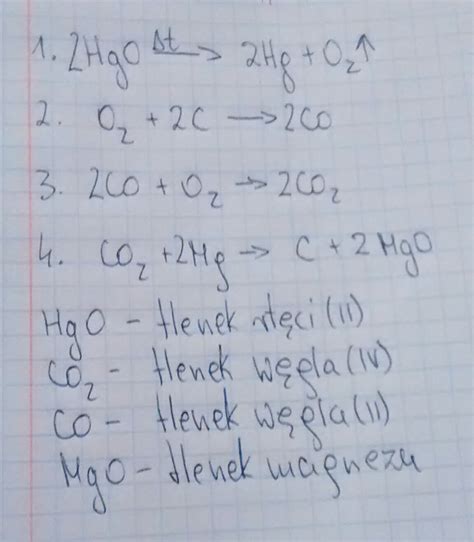 1. 2HgO Δt→ 2Hg + O₂↑
2. O₂ + 2C → 2CO
3. 2CO + O₂ → 2CO₂
4. CO₂ + 2Mg → C + 2MgO
HgO - tlenek rtęci (II)
CO₂ - tlenek węgla (IV)
CO - tlenek węgla (II)
MgO - tlenek magnezu